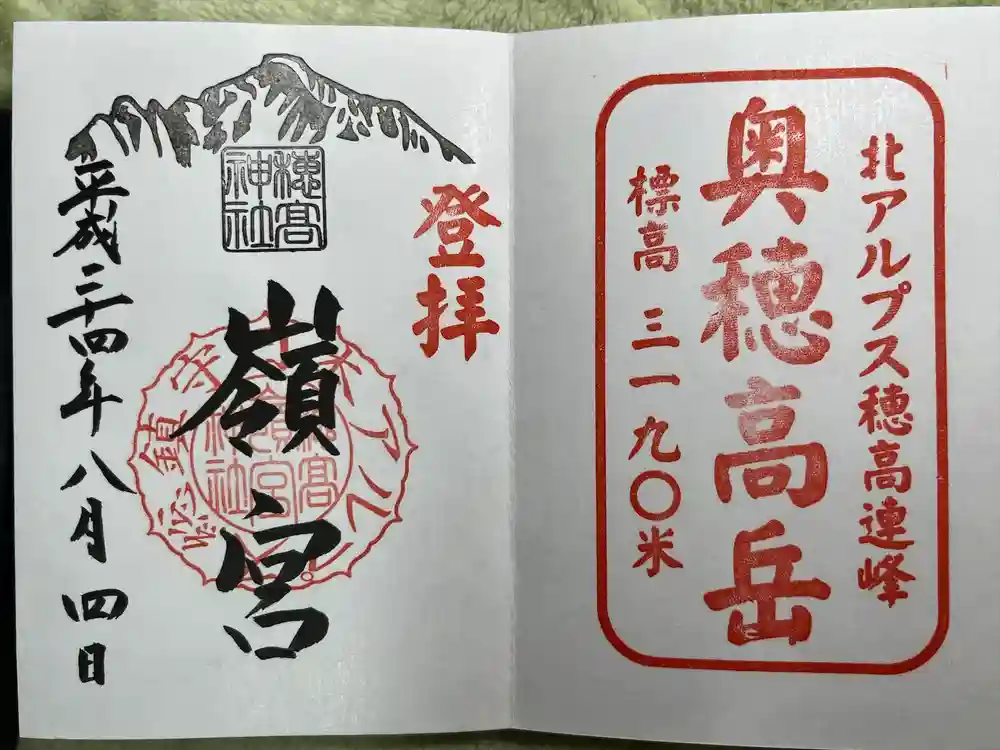 北アルプス穂高連峰
奥穂高岳
標高 三一九〇米
登拝
穂高
神社
嶺宮
平成二十四年八月四日